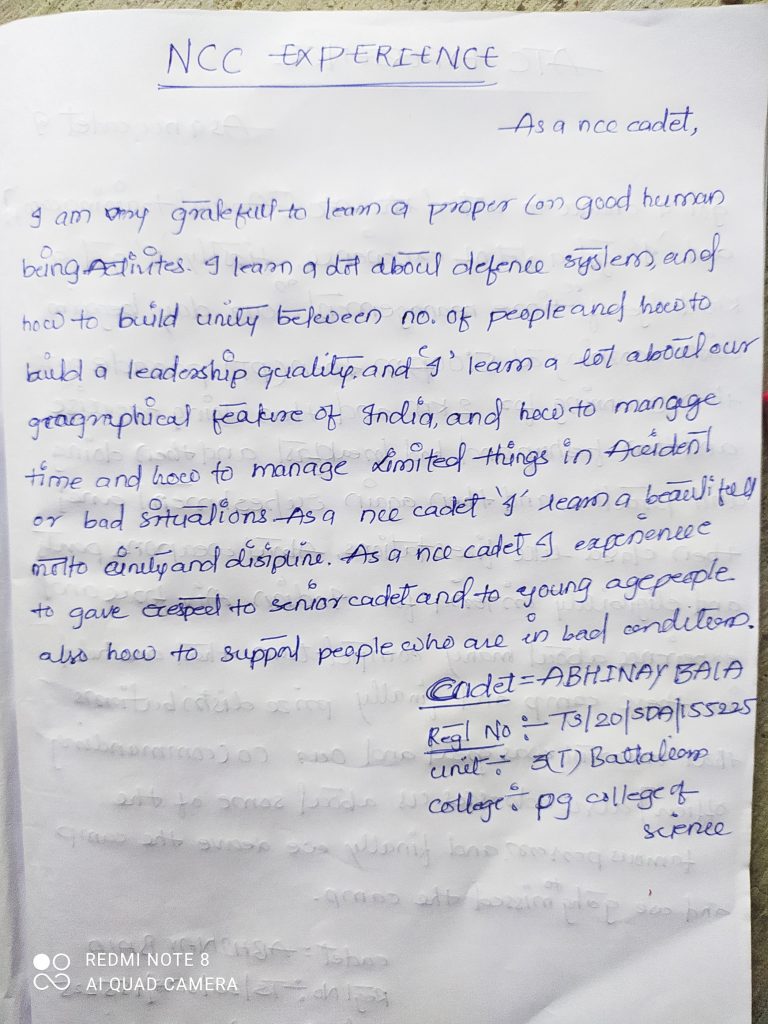 NCC EXPERIENCE
As a ncc cadet,
I am very gratefull to learn a proper (on good human
being Activites. I learn a dot about defence system, and
how to build unity between no. of people and how to
build a leadership quality. and 'I' learn a lot about our
geagraphical feature of India, and how to mangage
time and how to manage Limited things in Accident
or bad situations. As a ncc cadet 'I' learn a beautifull
motto unity and disipline. As a ncc cadet I experience
to gave respect to senior cadet and to young age people
also how to support people who are in bad condition.
Cadet = ABHINAY BALA
Regl No :- TS/20/SDA/155225
unit :- 3(T) Battalion
college :- pg college of
science
REDMI NOTE 8
AI QUAD CAMERA